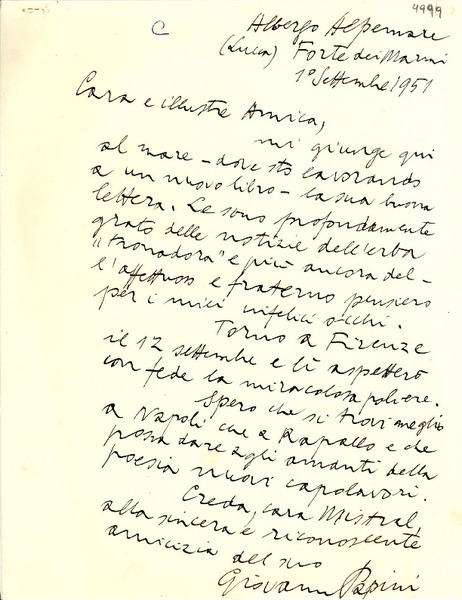 4999
C
Albergo Alpemare
(Lucca) Forte dei Marmi
1º Settembre 1951
Cara e illustre Amica,
mi giunge qui
al mare - dove sto lavorando
a un nuovo libro - la sua buona
lettera. Le sono profondamente
grato delle notizie dell'erba
"tronadora" e più ancora del-
l'affettuoso e fraterno pensiero
per i miei infelici occhi.
Torno a Firenze
il 12 settembre e lì aspetterò
con fede la miracolosa polvere.
Spero che si trovi meglio
a Napoli che a Rapallo e che
possa dare agli amanti della
poesia nuovi capolavori.
Creda, cara Mistral,
alla sincera e riconoscente
amicizia del suo
Giovanni Papini